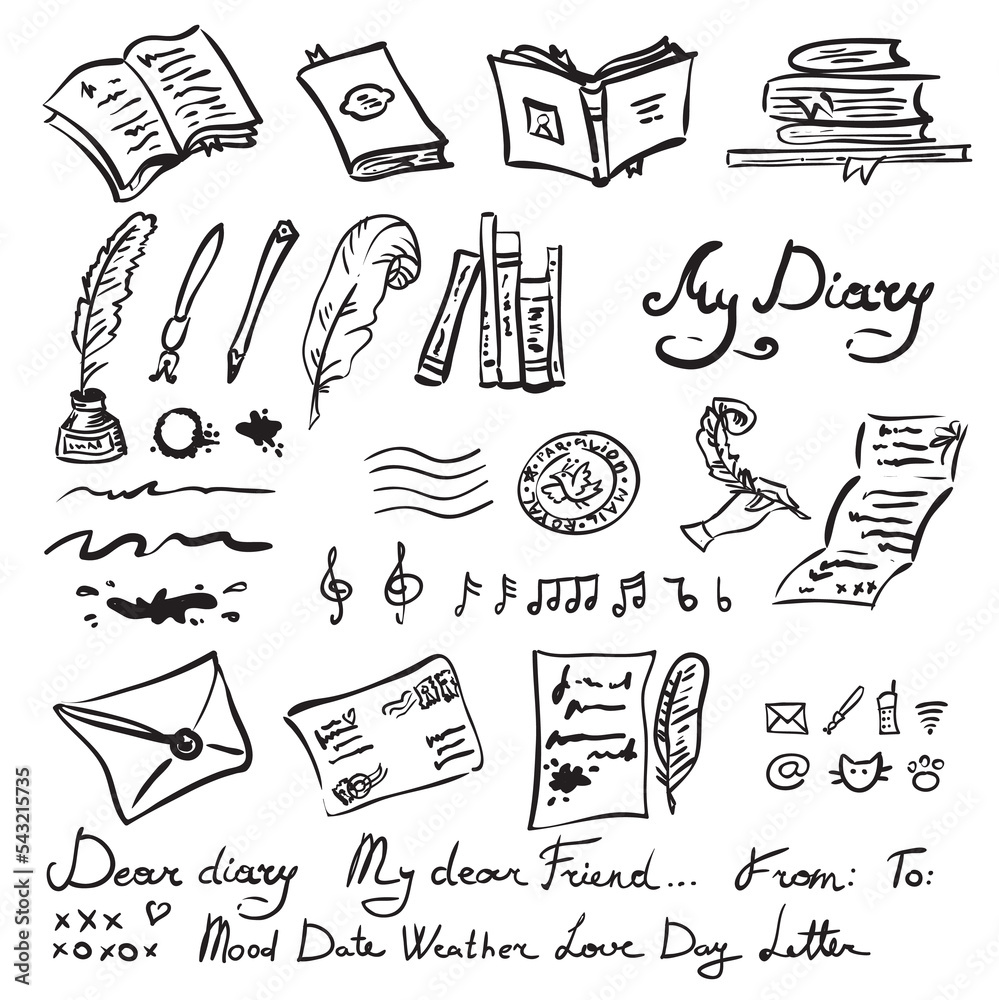 My Diary
PAR avion
ROYAL MAIL
xxx
Dear diary My dear Friend... From: To:
xxx
xoxox Mood Date Weather Love Day Letter
@
Adobe Stock | #543215735